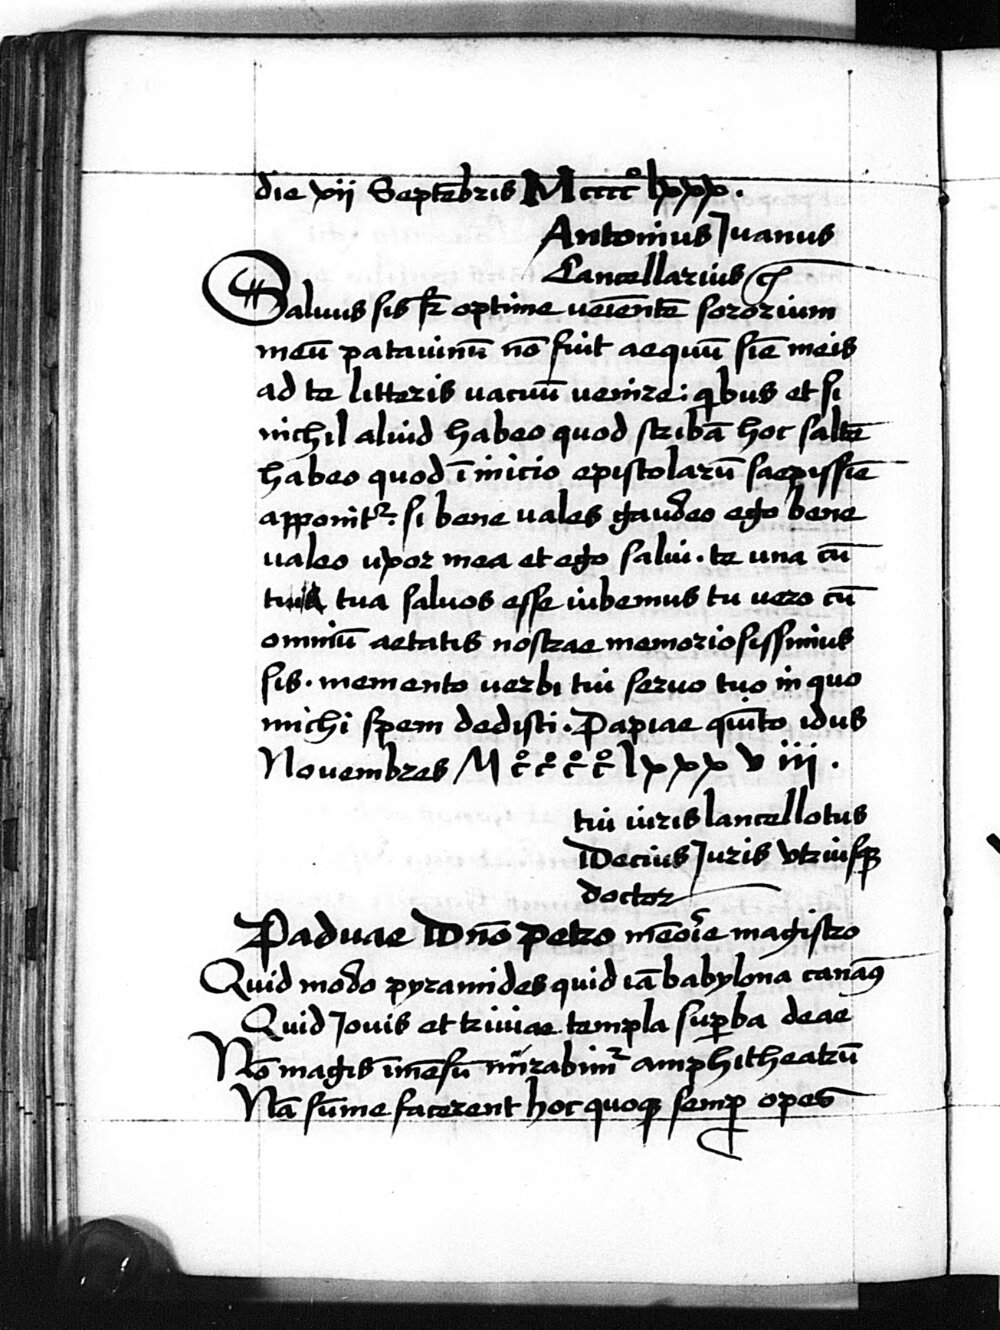 die xii Septe̅bris Mccccº lxxx.
Antonius Iuanus
Cancellarius
Saluus sis fr̅ optime ueie̅nte̅ sororium
meu̅ patauinu̅ no̅ fuit aequu̅ sie̅ meis
ad te litteris uacuu̅ uenire: qbus et si
nichil aliud habeo quod scriba̅ hoc salte̅
habeo quod i̅ inicio epistolaru̅ saepissie̅
apponitr. si bene uales gaudeo ego bene
ualeo uxor mea et ego salui. te una cu̅
tua saluos esse iubemus tu uero cu̅
omniu̅ aetatis nostrae memoriosissimus
sis. memento uerbi tui seruo tuo in quo
michi spem dedisti. Papiae qui̅to idus
Nouembres M cº cº cº cº lxxx v iii.
tui iuris lancellotus
Decius Iuris vtriusq
doctor
Paduae Dn̅o Petro meo̅ie magistro
Quid modo pyramides quid ia̅ babylona cana̅9
Quid Iouis et triuiae templa sup̅ba deae
No̅ magis i̅me̅su̅ mirabimr amphitheatru̅
Na̅ su̅me facerent hoc quoq semp̅ opes